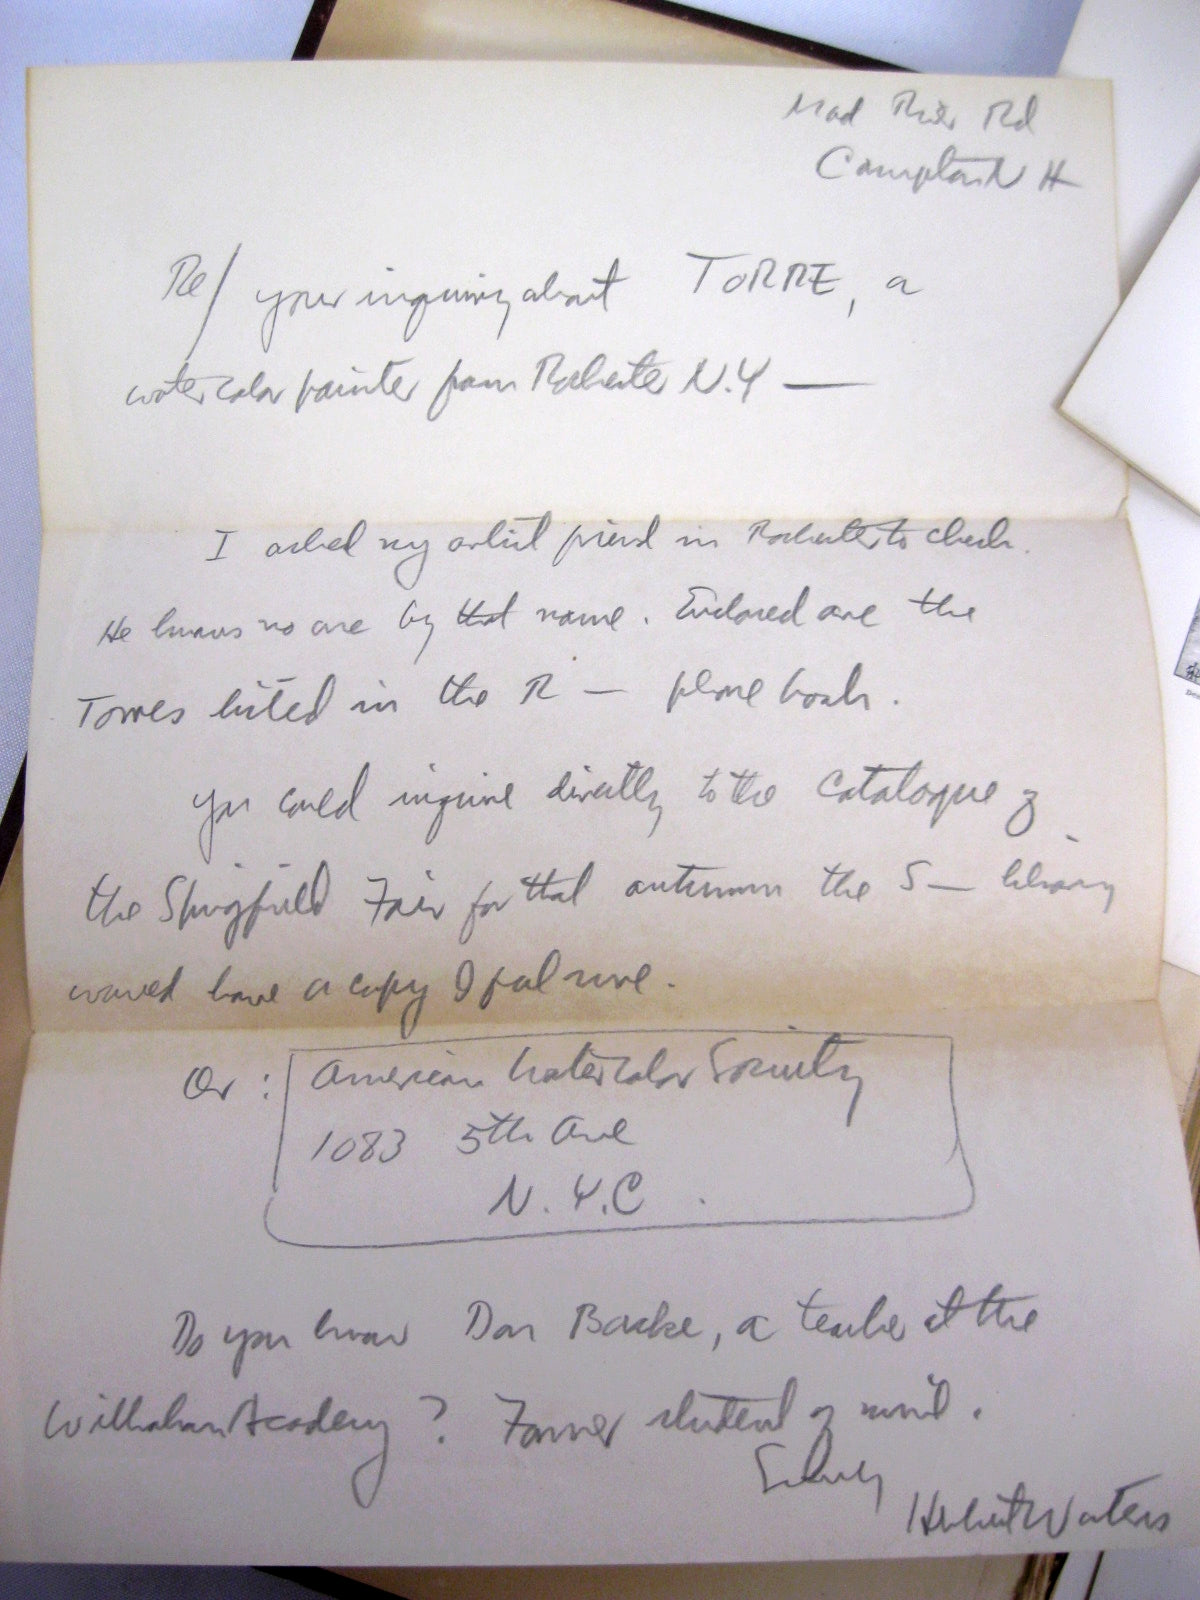 Mad River Rd
Campton N H
Re/ your inquiry about TORRE, a
watercolor painter from Rochester N.Y —
I asked my artist friend in Rochester to check.
He knows no one by that name. Enclosed are the
Torres listed in the R — phone book.
You could inquire directly to the catalogue of
the Springfield Fair for that autumn the S— library
would have a copy I feel sure.
Or: American Watercolor Society
1083 5th Ave
N.Y.C.
Do you know Don Backe, a teacher at the
Wilbraham Academy? Former student of mine.
Sincerely
Herbert Waters